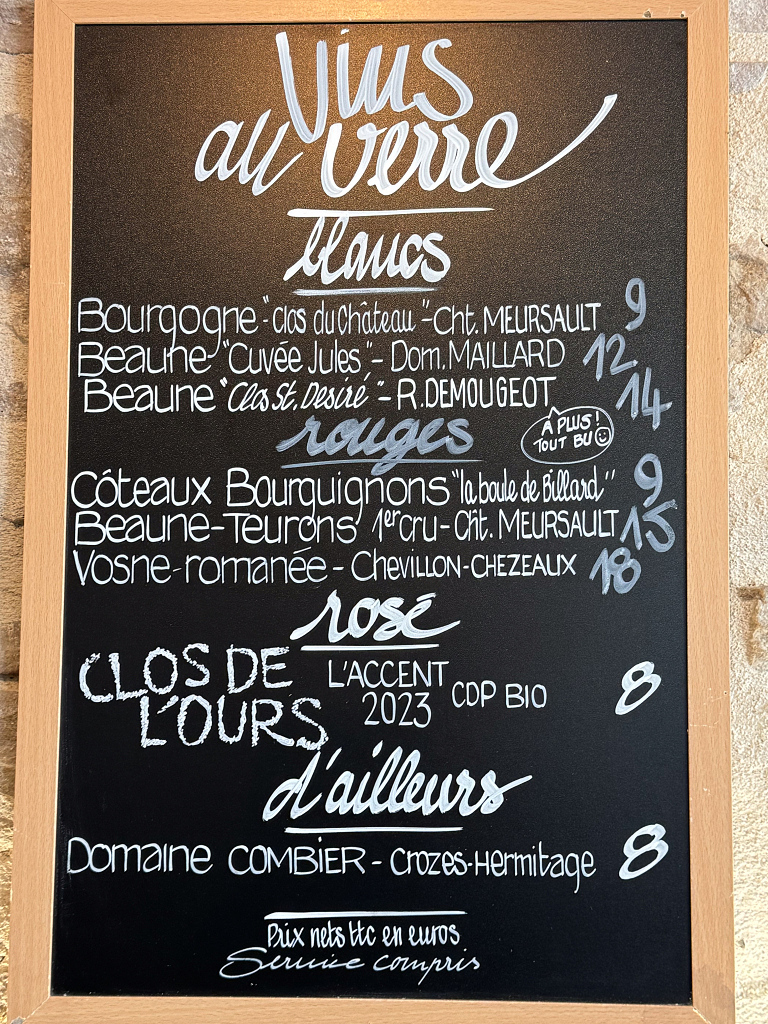 Vins
au verre
blancs
Bourgogne "Clos du Château" - Cht. MEURSAULT 9
Beaune "Cuvée Jules" - Dom. MAILLARD 12
Beaune "Clos St. Desiré" - R. DEMOUGEOT 14
À PLUS!
TOUT BU
rouges
Côteaux Bourguignons "la boule de Billard" 9
Beaune-Teurons 1er cru - Cht. MEURSAULT 15
Vosne-romanée - CHEVILLON-CHEZEAUX 18
rosé
CLOS DE L'OURS L'ACCENT 2023 CDP BIO 8
d'ailleurs
Domaine COMBIER - Crozes-Hermitage 8
Prix nets ttc en euros
Service compris